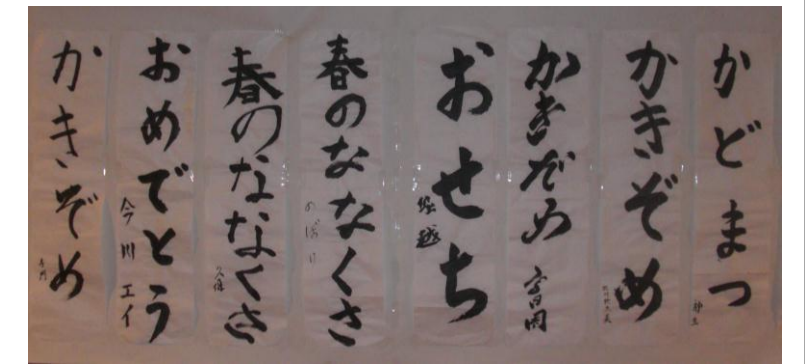 かどまつ
かきぞめ
かきぞめ
富岡
おせち
堀越
春のななくさ
のぼり
春のななくさ
久保
おめでとう
今川エイ
かきぞめ